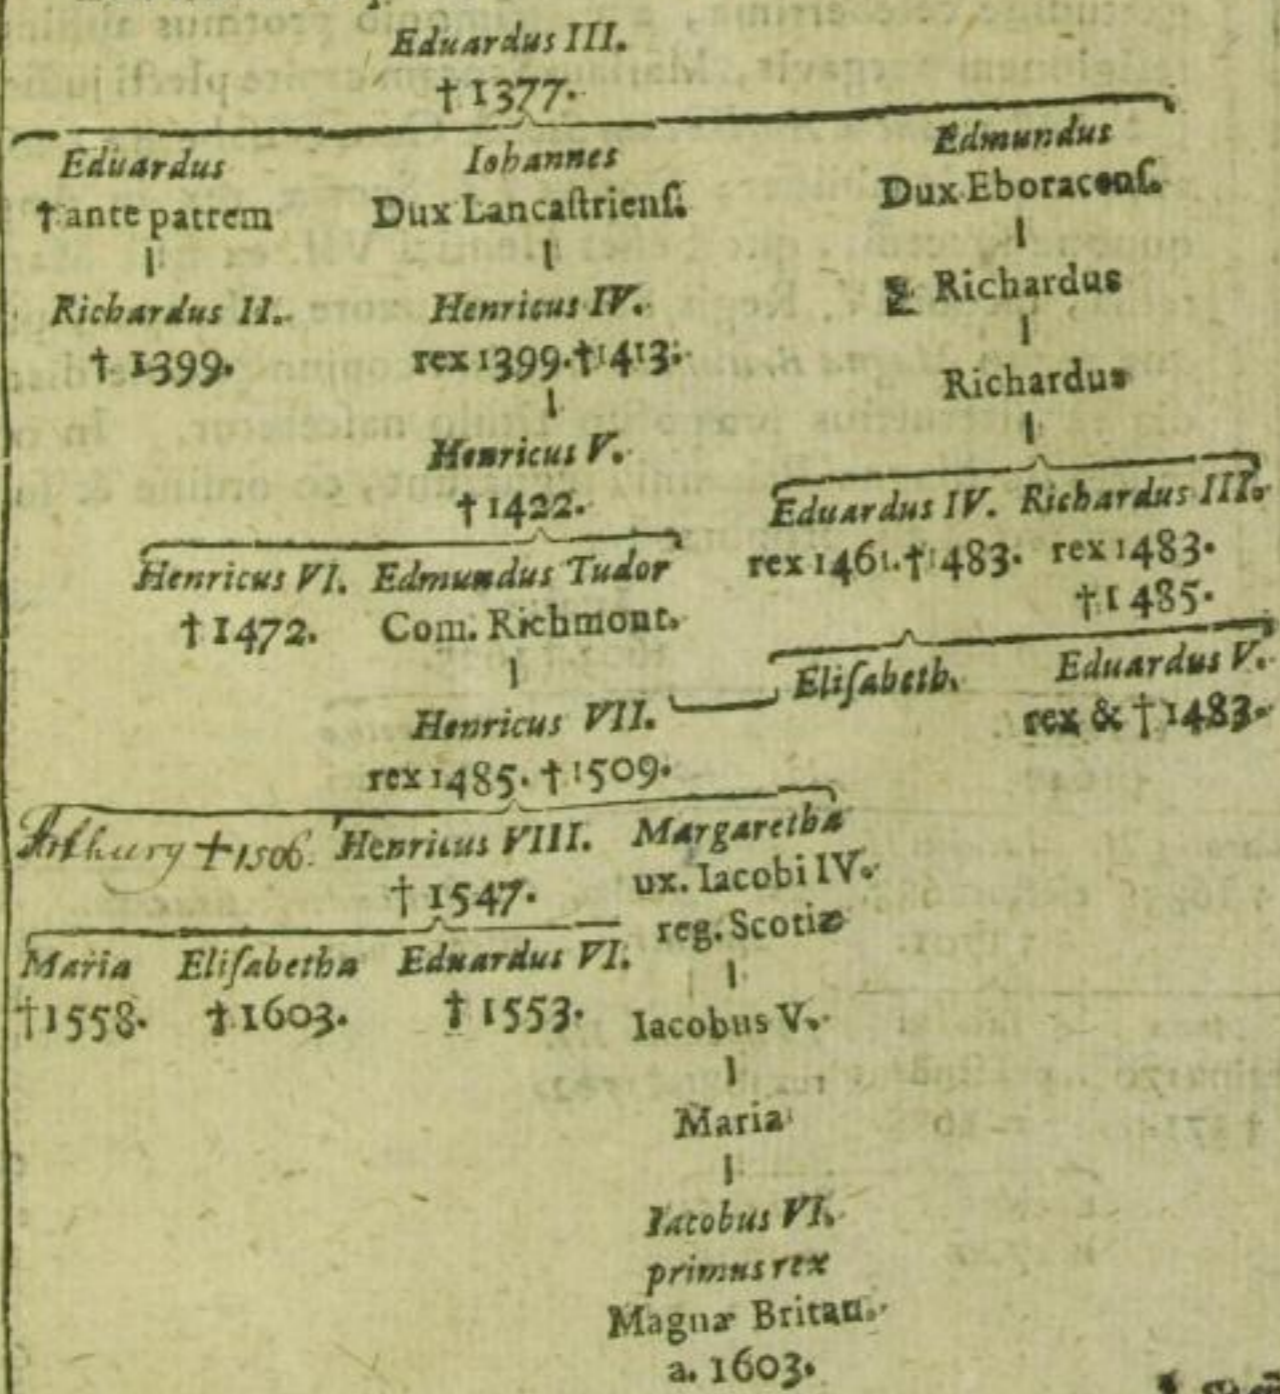 Eduardus III.
† 1377.
Eduardus
† ante patrem
Richardus II.
† 1399.
Iohannes
Dux Lancaſtrienſ.
Henricus IV.
rex 1399. † 1413.
Henricus V.
† 1422.
Edmundus
Dux Eboracenſ.
Richardus
Richardus
Henricus VI.
† 1472.
Edmundus Tudor
Com. Richmont.
Eduardus IV.
rex 1461. † 1483.
Richardus III.
rex 1483.
† 1485.
Henricus VII.
rex 1485. † 1509.
Eliſabeth.
Eduardus V.
rex & † 1483.
† 1506.
Henricus VIII.
† 1547.
Margaretha
ux. Iacobi IV.
reg. Scotiæ
Maria
† 1558.
Eliſabetha
† 1603.
Eduardus VI.
† 1553.
Iacobus V.
Maria
Iacobus VI.
primus rex
Magnæ Britan.
a. 1603.